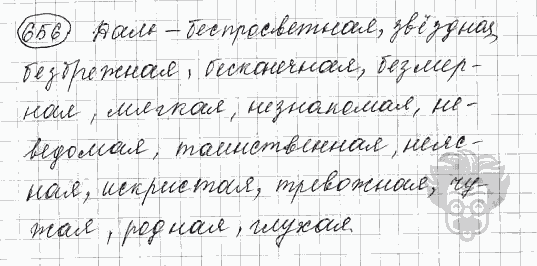 656 Даль – беспросветная, звёздная,
безбрежная, бесконечная, безмер-
ная, мягкая, незнакомая, не-
ведомая, таинственная, неяс-
ная, искристая, тревожная, чу-
жая, родная, глухая.